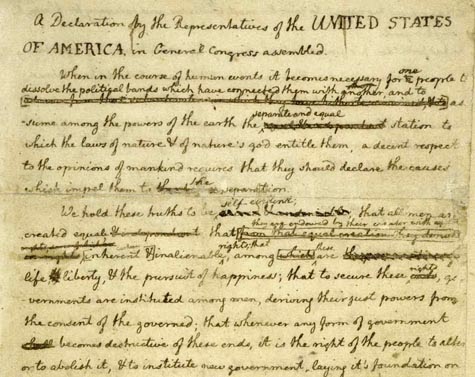 A Declaration by the Representatives of the UNITED STATES
OF AMERICA, in General Congress assembled.
When in the course of human events it becomes necessary for one people to
dissolve the political bands which have connected them with another, and to
as-
separate and equal
sume among the powers of the earth the station to
which the laws of nature & of nature's god entitle them, a decent respect
to the opinions of mankind requires that they should declare the causes
which impel them to the separation.
self-evident;
We hold these truths to be that all men are
they are endowed by their creator with
created equal & independant; that from that equal creation they derive
rights; that these
inherent & inalienable, among which are
rights
life & liberty, & the pursuit of happiness; that to secure these ends, go-
vernments are instituted among men, deriving their just powers from
the consent of the governed; that whenever any form of government
shall becomes destructive of these ends, it is the right of the people to alter
or to abolish it, & to institute new government, laying it's foundation on